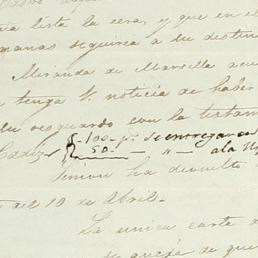 ia lista la cera, y que en el
manas seguirá a tu destino
Miranda de Marsella acu
tenga V. noticia de haber
tu resguardo con la
Cadiz 100 p. Se entregaron
50. — " — a la
Simon ha devuelto
del 10 de Abril.
La unica carta d
se queja de que